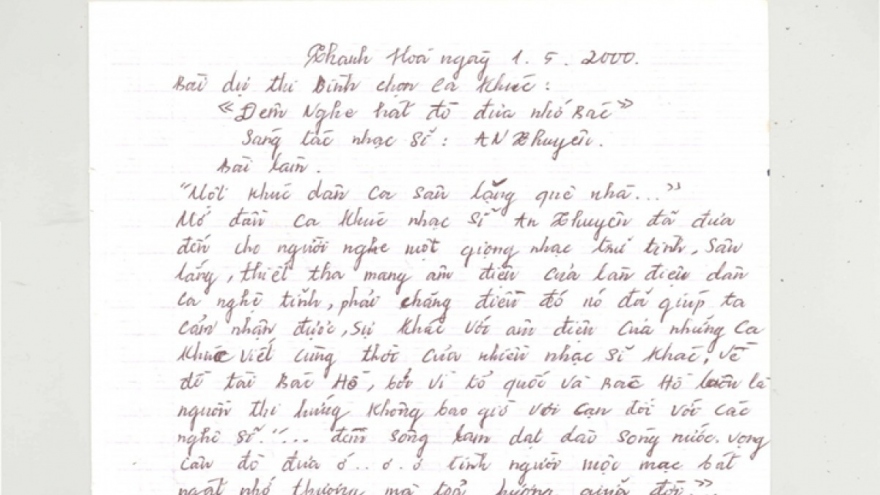 Thanh Hoá ngày 1.5.2000.
Bài dự thi Bình chọn ca khúc:
«Đêm Nghe hát đò đưa nhớ Bác»
Sáng tác nhạc sĩ: AN Thuyên.
Bài làm.
"Một khúc dân ca sâu lắng quê nhà..."
Mở đầu ca khúc nhạc sĩ An Thuyên đã đưa
đến cho người nghe một giọng nhạc trữ tình, sâu
lắng, thiết tha mang âm điệu của làn điệu dân
ca nghệ tĩnh, phải chăng điều đó nó đã giúp ta
cảm nhận được, sự khác với âm điệu của những ca
khúc viết cùng thời của nhiều nhạc sĩ khác, về
đề tài Bác Hồ, bởi vì tổ quốc và Bác Hồ luôn là
nguồn thi hứng không bao giờ vơi cạn đối với các
nghệ sĩ. "... đêm sông lam dạt dào sóng nước. vọng
câu đò đưa ơ..ơ.ơ tình người mộc mạc bát
ngát nhớ thương mà toả hương giữa đời".